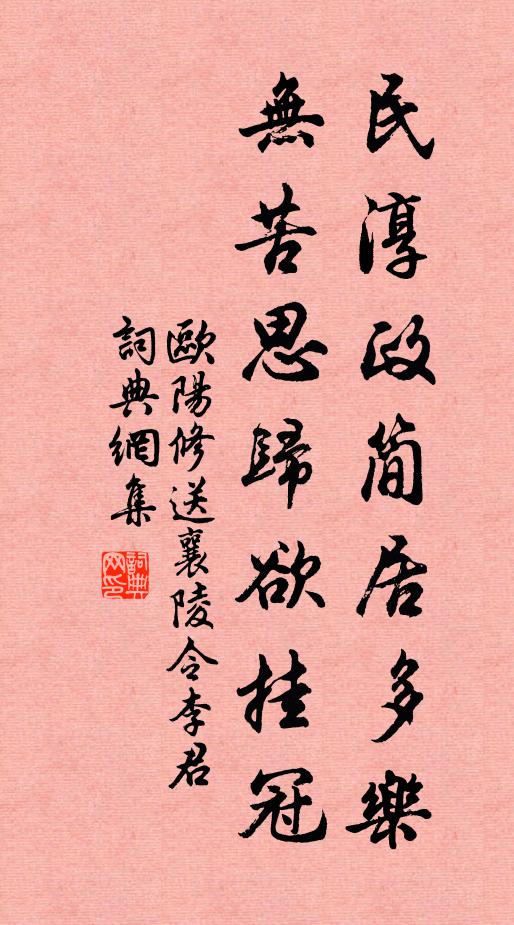 民淳政简居多樂
無苦思歸欲挂冠
歐陽修送襄陵令李君
詞典網集
詞典网印